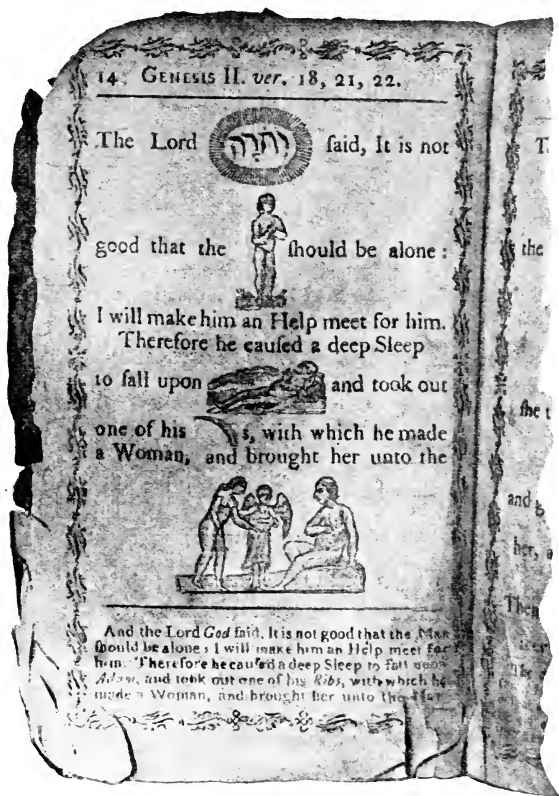 14 GENESIS II. ver. 18, 21, 22.
The Lord יְהֹוָה ſaid, It is not
good that the ſhould be alone:
I will make him an Help meet for him.
Therefore he cauſed a deep Sleep
to fall upon and took out
one of his s, with which he made
a Woman, and brought her unto the
And the Lord God ſaid, It is not good that the Man
ſhould be alone; I will make him an Help meet for
him. Therefore he cauſed a deep Sleep to fall upon
Adam, and took out one of his Ribs, with which he
made a Woman, and brought her unto the
the
ſhe t
her, a